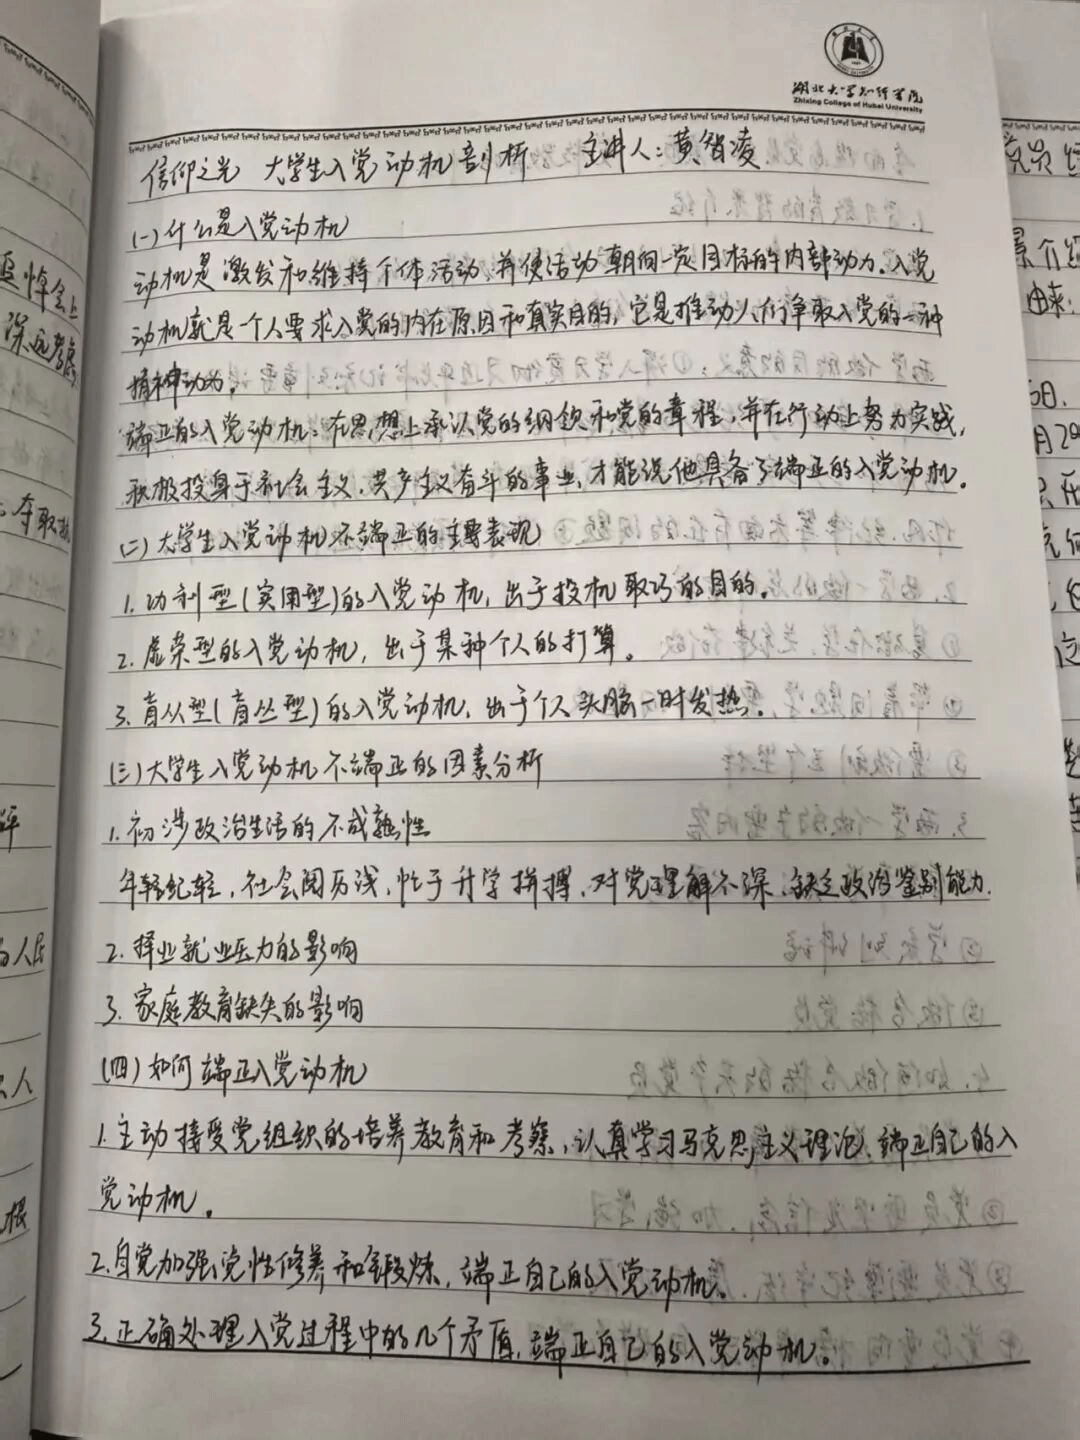 湖北大学知行学院
Zhixing College of Hubei University
信仰之光 大学生入党动机剖析 主讲人：黄智凌
(一)什么是入党动机
动机是激发和维持个体活动，并使活动朝向一定目标的内部动力。入党
动机就是一个人要求入党的内在原因和真实目的，它是推动人们争取入党的一种
精神动力。
端正的入党动机：在思想上承认党的纲领和党的章程，并在行动上努力实践，
积极投身于社会主义、共产主义奋斗的事业，才能说他具备了端正的入党动机。
(二)大学生入党动机不端正的主要表现
1.功利型(实用型)的入党动机，出于投机取巧的目的。
2.虚荣型的入党动机，出于某种个人的打算。
3.盲从型(盲丛型)的入党动机，出于个人头脑一时发热。
(三)大学生入党动机不端正的因素分析
1.初涉政治生活的不成熟性
年轻纪轻，社会阅历浅，忙于升学拼搏，对党理解不深，缺乏政治鉴别能力.
2.择业就业压力的影响
3.家庭教育缺失的影响
(四)如何端正入党动机
1.主动接受党组织的培养教育和考察，认真学习马克思主义理论，端正自己的入
党动机。
2.自觉加强党性修养和锻炼，端正自己的入党动机。
3.正确处理入党过程中的几个矛盾，端正自己的入党动机。
追悼会上
深远考虑
夺取
人民
人
根
党员
介绍
由来：